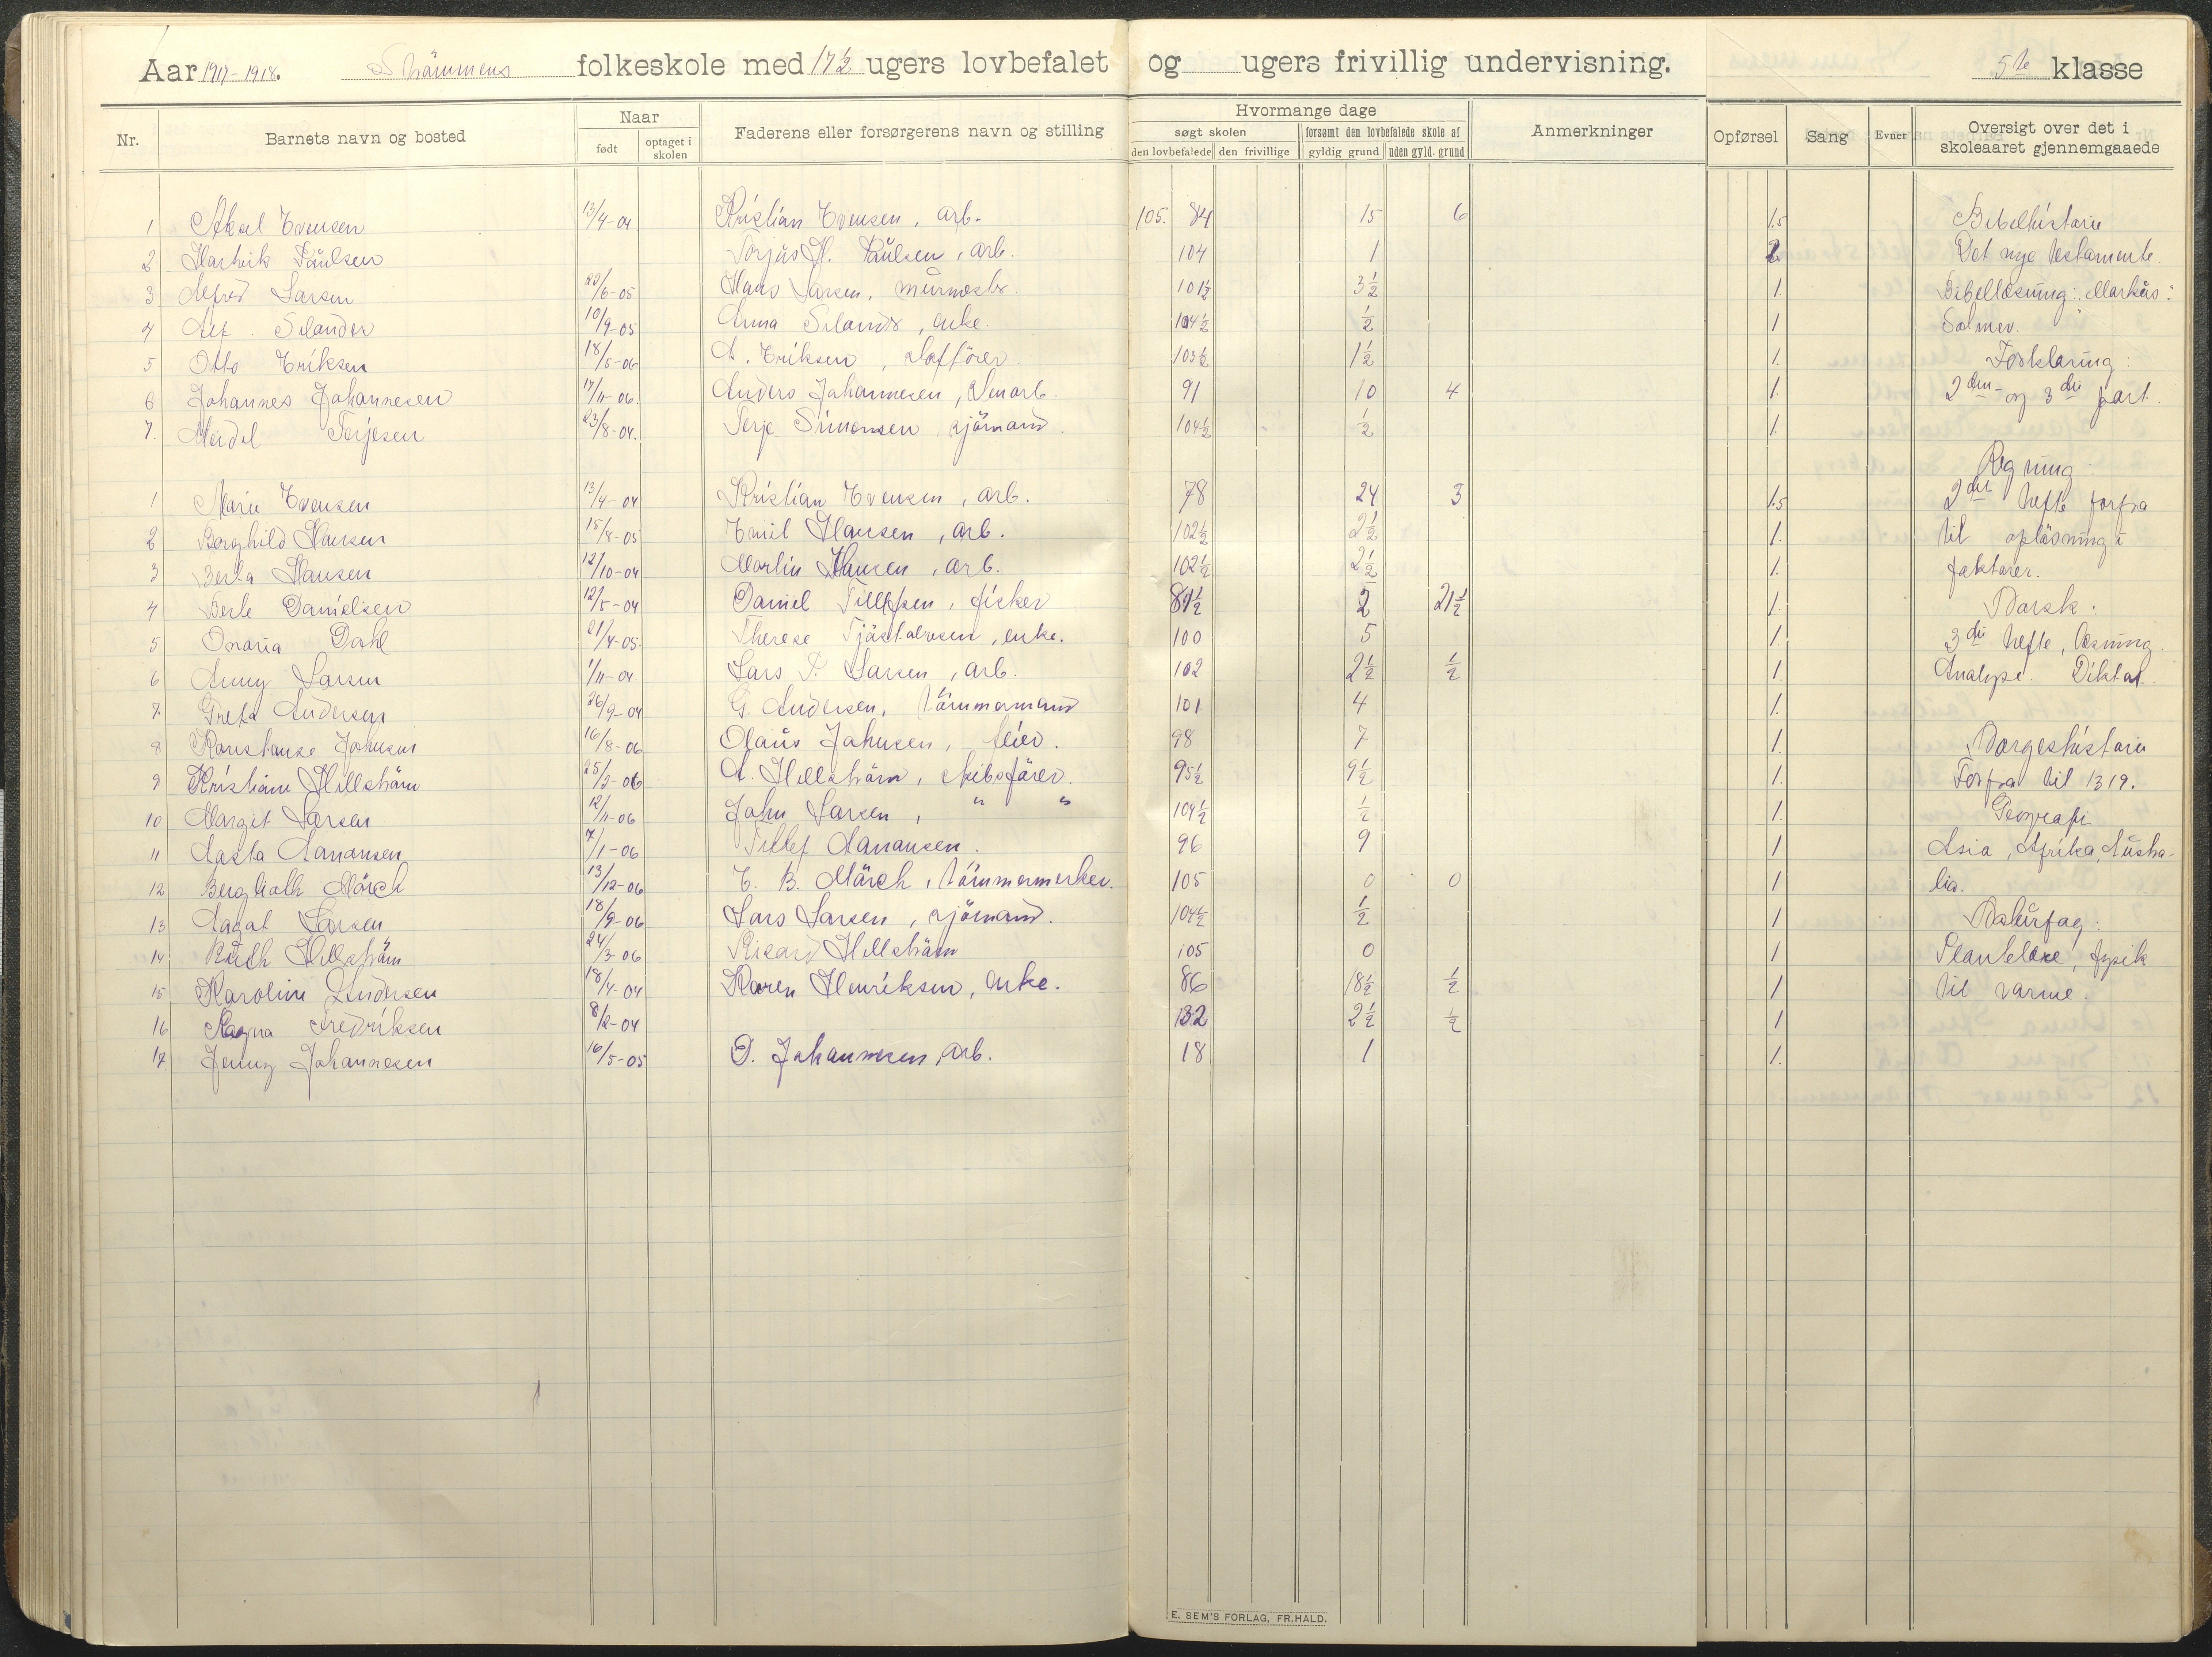 Aar 1917-1918. Strömmens folkeskole med 17½ ugers lovbefalet og ugers frivillig undervisning. 5te klasse
Nr. Barnets navn og bosted Naar født optaget i skolen Faderens eller forsørgerens navn og stilling Hvormange dage søgt skolen den lovbefalede den frivillige forsømt den lovbefalede skole af gyldig grund uden gyld. grund Anmerkninger Opførsel Sang Evner Oversigt over det i skoleaaret gjennemgaaede
1 Aksel Evensen 13/4-04 Kristian Evensen, arb. 105. 84 15 6 1.5 Bibelhistorie
2 Hartvik Paulsen Torjus H. Paulsen, arb. 104 1 2 Det nye testamente.
3 Alfred Larsen 22/6-05 Hans Larsen, murmestr. 101½ 3½ 1. Bibellæsning: Markus:
4 Alf. Selander 10/9-05 Anna Selander, enke. 104½ ½ 1 Salmer.
5 Otto Eriksen 18/5-06 A. Eriksen, 103½ 1½ 1. Forklaring:
6 Johannes Johannesen 17/11-06. Anders Johannesen, 91 10 4 1. 2den og 3die part.
7. Terjesen 23/8-04. Terje Simonsen, sjömand. 104½ ½ 1.
Regning:
1 Marie Evensen 13/4-04 Kristian Evensen, arb. 78 24 3 1.5 2det hefte forfra
2 Borghild Hansen 15/8-05 Emil Hansen, arb. 102½ 2½ 1. til oplösning i
3 Berta Hansen 12/10-04 Martin Hansen, arb. 102½ 2½ 1. faktorer.
4 Berte Danielsen 12/5-04 Daniel Tellefsen, fisker 81½ 2 21½ 1. Norsk.
5 Onaria Dahl 21/4-05. Therese Tjöstolvsen, enke. 100 5 1. 3die hefte, læsning.
6 Anny Larsen 1/11-04 Lars P. Larsen, arb. 102 2½ ½ 1. Analyse. Diktat.
7. Greta Andersen 26/9-04 G. Andersen, tömmermand 101 4 1.
8 Konstanse Johnsen 16/8-06 Olaus Johnsen, feier. 98 7 1. Norgeshistorie
9 Kristiane Hillström 25/3-06 A. Hellström, skibsförer. 95½ 9½ 1. Forfra til 1319.
10 Margit Larsen 12/11-06 John Larsen, " " 104½ ½ 1. Geografi
11 Aasta Aanansen 7/1-06 Tellef Aanansen. 96 9 1 Asia, Afrika, Austra-
12 Bergliolt Mörch 13/12-06 E. B. Mörch, tömmermerker. 105 0 0 1 lia.
13 Aagot Larsen 18/9-06 Lars Larsen, sjömand. 104½ ½ 1 Naturfag:
14 Ruth Hellström 24/3-06 Rikard Hellström 105 0 1 Plantelære, fysik
15 Karoline Andersen 18/4-04 Karen Henriksen, enke. 86 18½ ½ 1 til varme.
16 Magna Fredriksen 8/2-04 132 2½ ½ 1
17 Jenny Johannesen 16/5-05 O. Johannesen, arb. 18 1 1.
E. SEM'S FORLAG, FR.HALD.